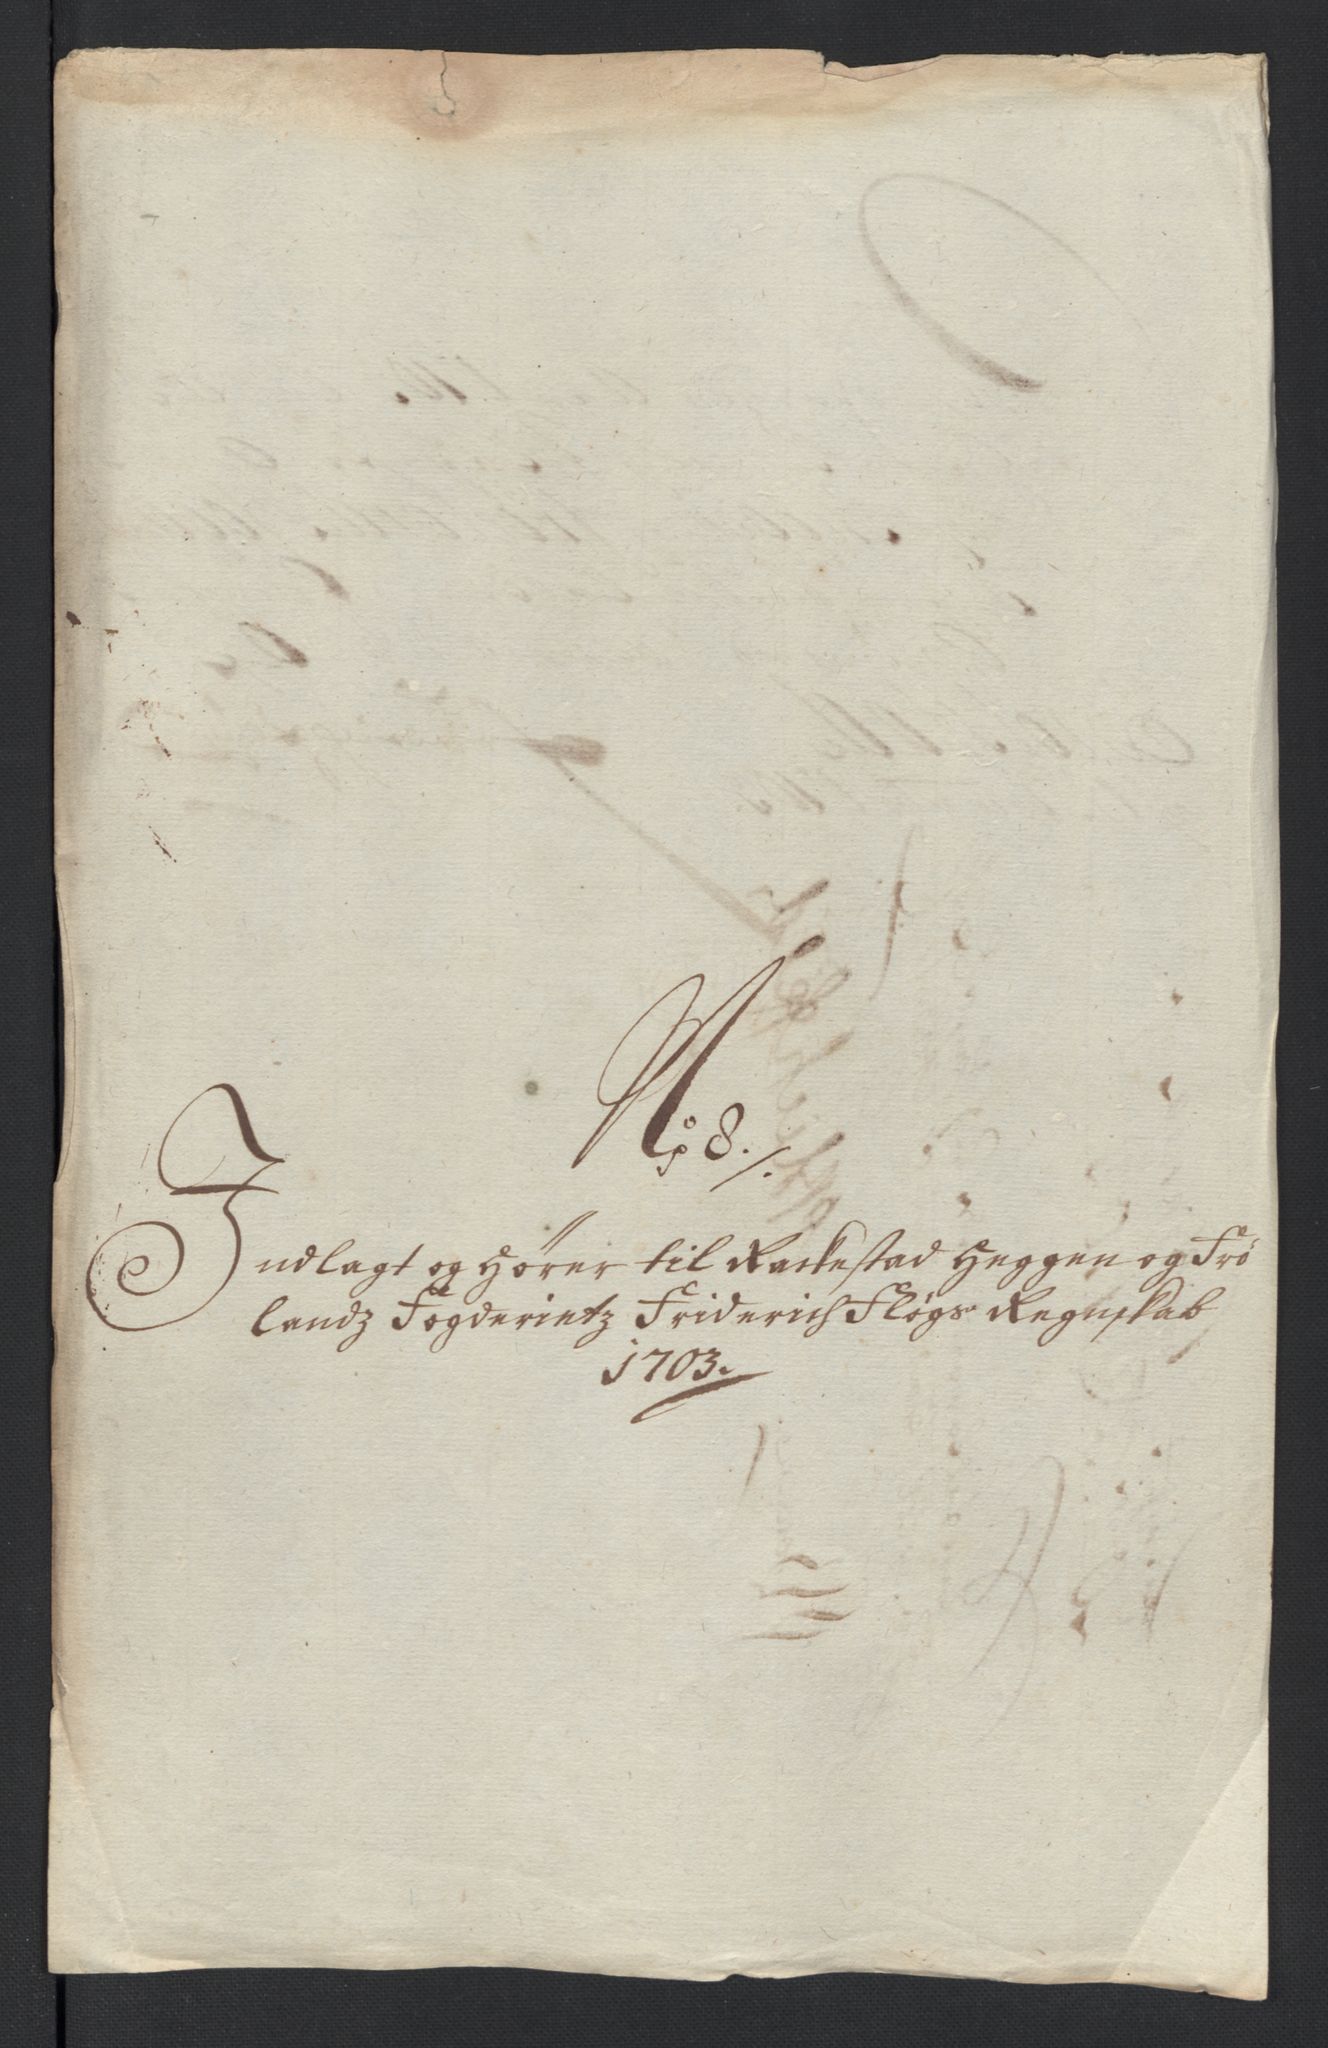 No 8./.
Indlagt og Hører til Rackestad Heggen og Frö
landz Fogderietz Friderich Fløgs Regnskab
1703.